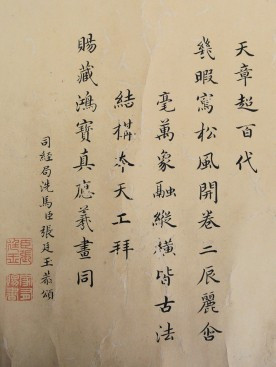 天章超百代
幾暇寫松風開卷二辰麗含
毫萬象融縱橫皆古法
結構夲天工拜
賜藏鴻寶真應羲畫同
司經局洗馬臣張廷玉恭頌